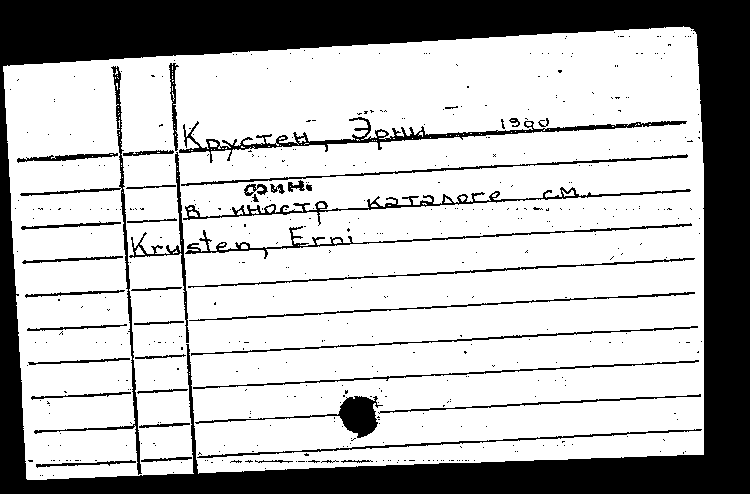 Крустен, Эрни 1900
фин.
в иностр. каталоге см.
Krusten, Erni